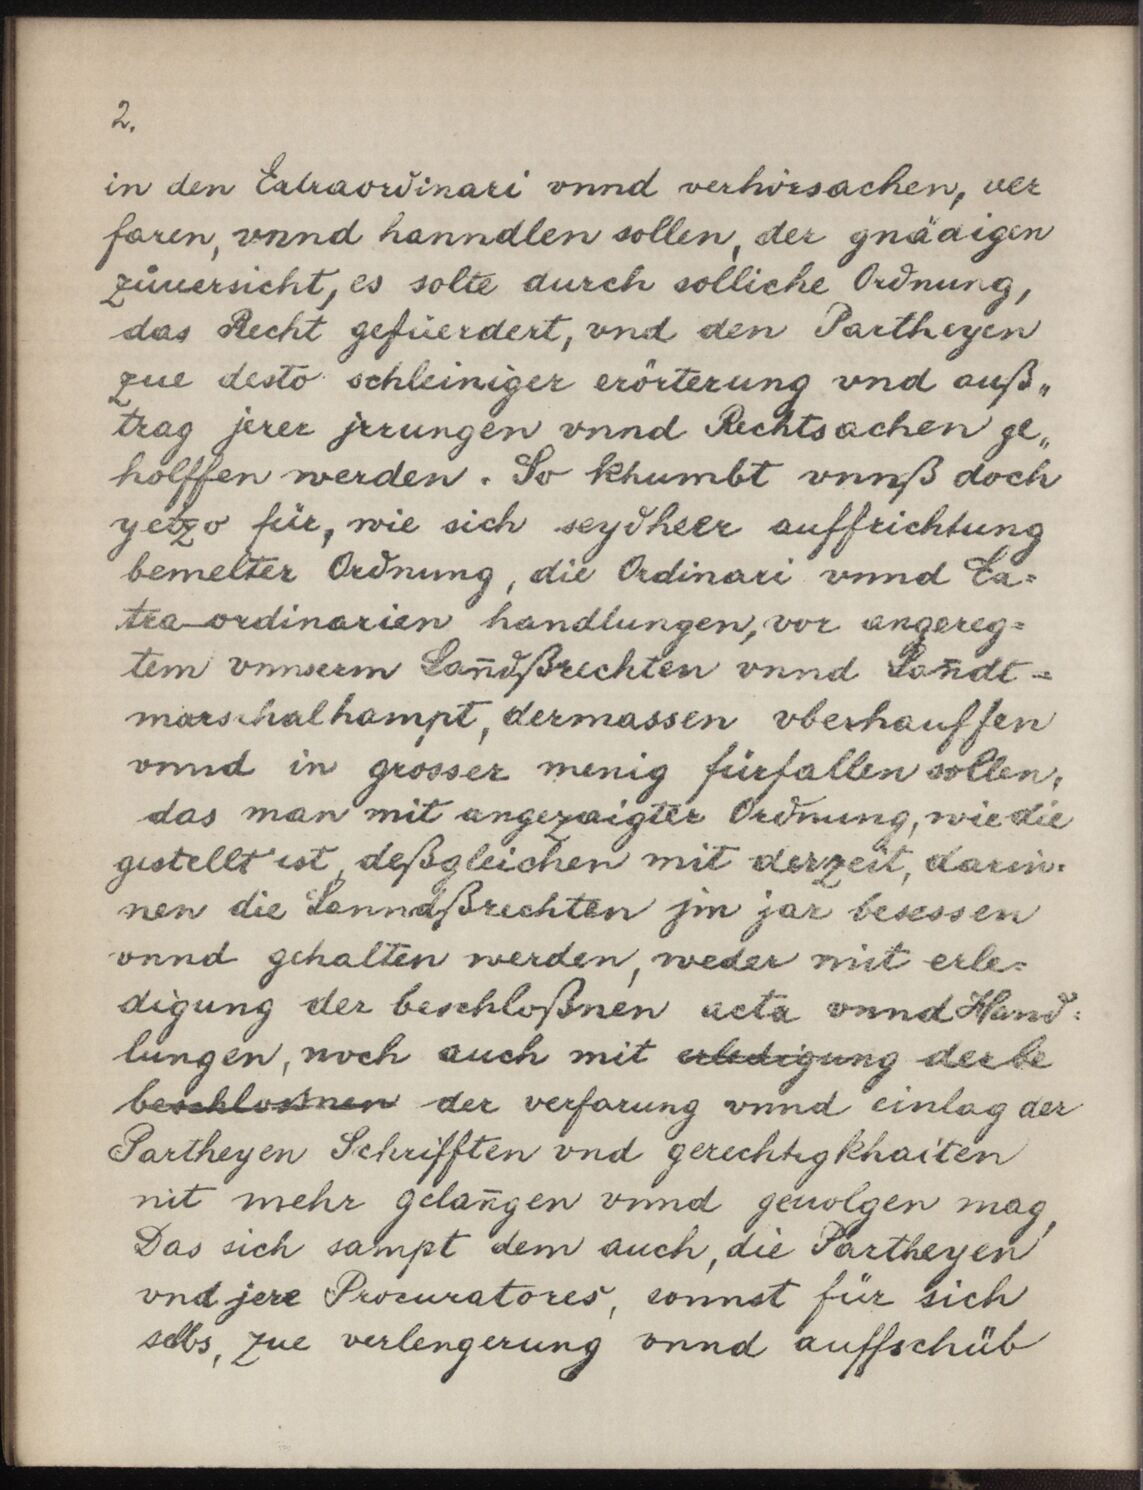 2.
in den Extraordinari vnnd verhörsachen, ver
faren, vnnd hanndlen sollen, der gnädigen
zůuersicht, es solte durch solliche Ordnung,
das Recht gefüerdert, vnd den Partheyen
zue desto schleiniger erörterung vnd auß„
trag jerer jrrungen vnnd Rechtsachen ge„
holffen werden. So khumbt vnnß doch
yetzo für, wie sich seydheer auffrichtung
bemelter Ordnung, die Ordinari vnnd Ex=
tra-ordinarien handlungen, vor angereg=
tem vnnserm Lan̄dßrechten vnnd Lan̄dt=
marschalhampt, dermassen vberhauffen
vnnd in grosser menig fürfallen sollen,
das man mit angezaigter Ordnung, wie die
gestellt ist, deßgleichen mit der zeit, darin=
nen die Lanndßrechten jm jar besessen
vnnd gehalten werden, weder mit erle=
digung der beschloßnen acta vnnd Hand=
lungen, noch auch mit erledigung der be
beschlossnen der verfarung vnnd einlag der
Partheyen Schrifften vnd gerechtigkhaiten
nit mehr gelan̄gen vnnd geuolgen mag,
Das sich sampt dem auch, die Partheyen
vnd jere Procuratores, sonnst für sich
selbs, zue verlengerung vnnd auffschüb